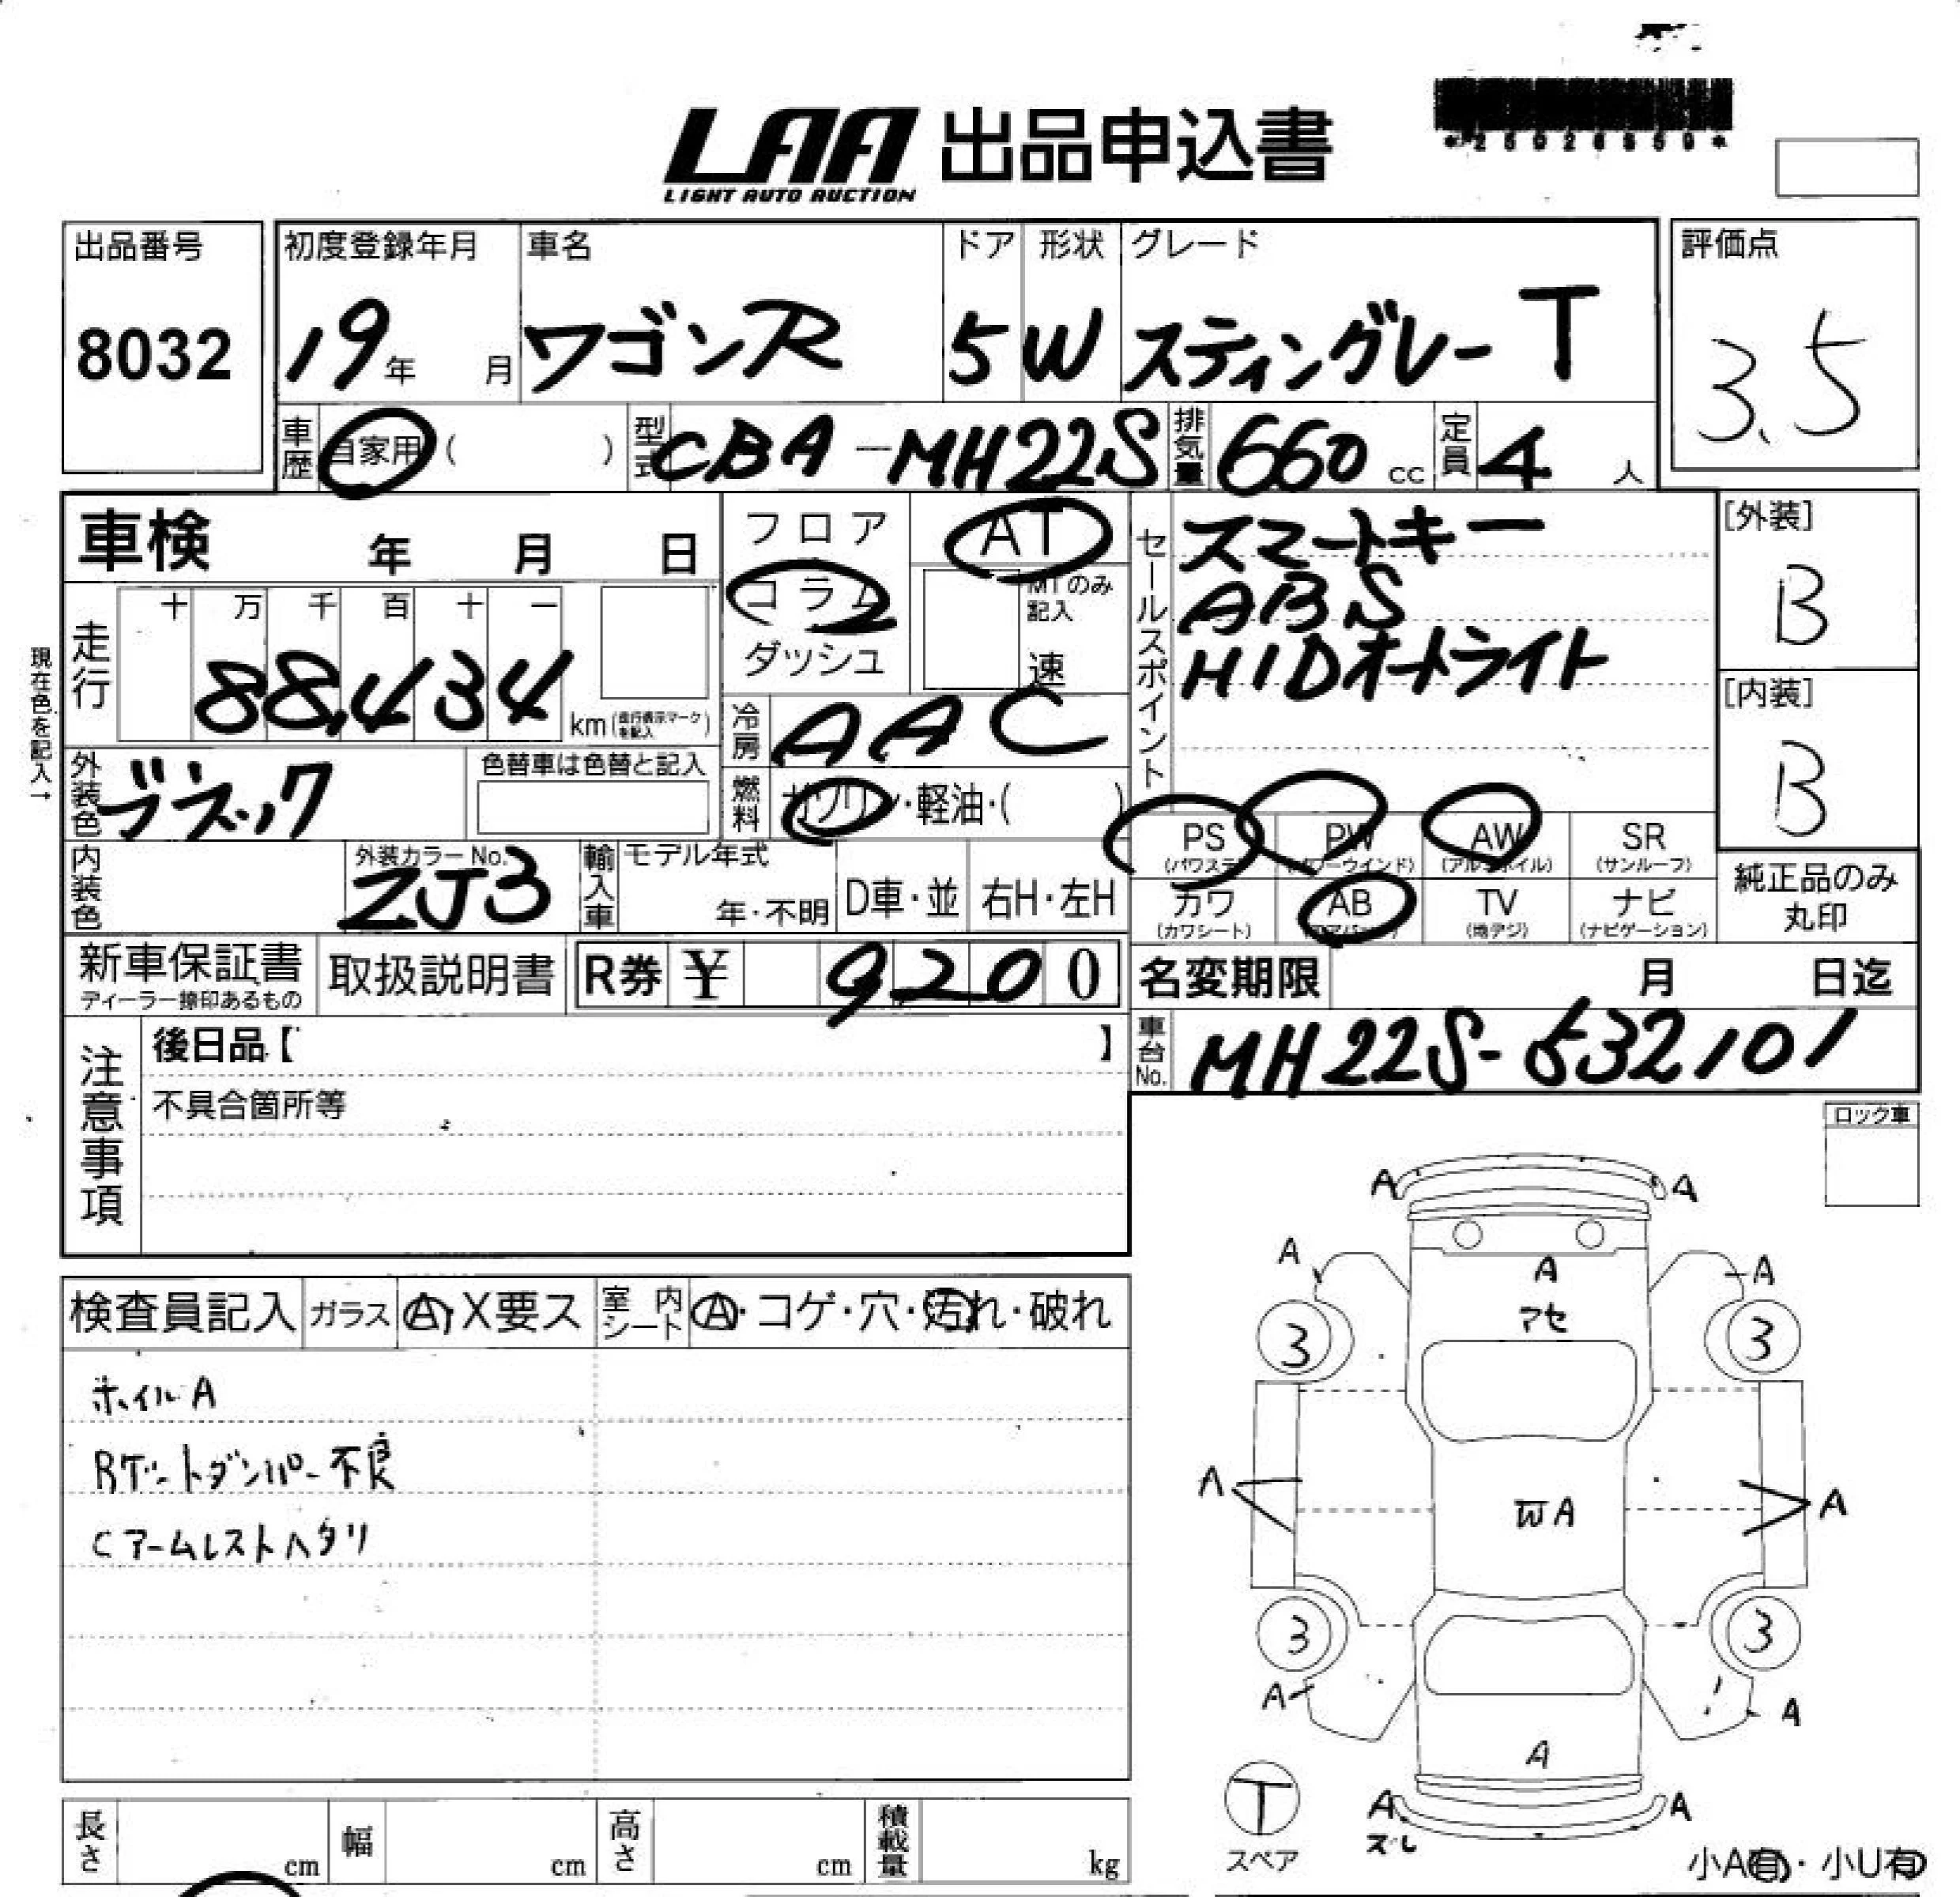 LAA 出品申込書
LIGHT AUTO AUCTION
出品番号 初度登録年月 車名 ドア 形状 グレード 評価点
8032 19年 月 ワゴンR 5 W スティングレー T 3.5
車歴 自家用 ( ) 型式 CBA-MH22S 排気量 660 cc 定員 4 人
車検 年 月 日
フロア AT
コラム MTのみ記入
ダッシュ 速
セールスポイント
スマートキー
ABS
HIDオートライト
[外装]
B
[内装]
B
現在色を記入→
走行 十 万 千 百 十 一
88,434 km (走行表示マークを記入)
冷房 AAC
外装色 ブラック 色替車は色替と記入
燃料 ガソリン・軽油・( )
PS (パワステ) PW (パワーウインド) AW (アルミホイル) SR (サンルーフ)
カワ (カワシート) AB (エアバッグ) TV (地デジ) ナビ (ナビゲーション)
純正品のみ
丸印
内装色 外装カラーNo. ZJ3 輸入車 モデル年式 年・不明 D車・並 右H・左H
新車保証書 ディーラー捺印あるもの 取扱説明書 R券 ¥ 9200
名変期限 月 日迄
車台No. MH22S-532101
注意事項
後日品【 】
不具合箇所等
ロック車
検査員記入 ガラス A・X要ス 室内シート A・コゲ・穴・汚れ・破れ
ホイルA
Rゲートダンパー不良
Cアームレストヘタリ
A A
A A A
アセ
3 3
A W A A
3 3
A A
A
A A
ズレ
T
スペア
小A有・小U有
長さ cm 幅 cm 高さ cm 積載量 kg